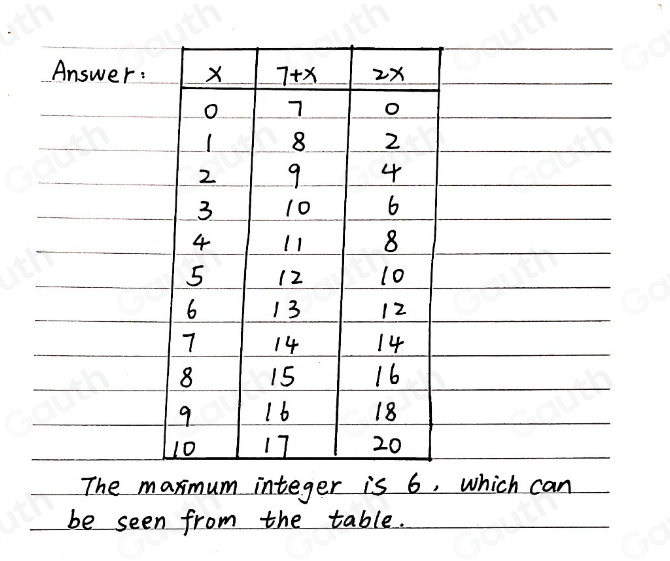 Answer: x 7+x 2x
0 7 0
1 8 2
2 9 4
3 10 6
4 11 8
5 12 10
6 13 12
7 14 14
8 15 16
9 16 18
10 17 20
The maximum integer is 6, which can
be seen from the table.